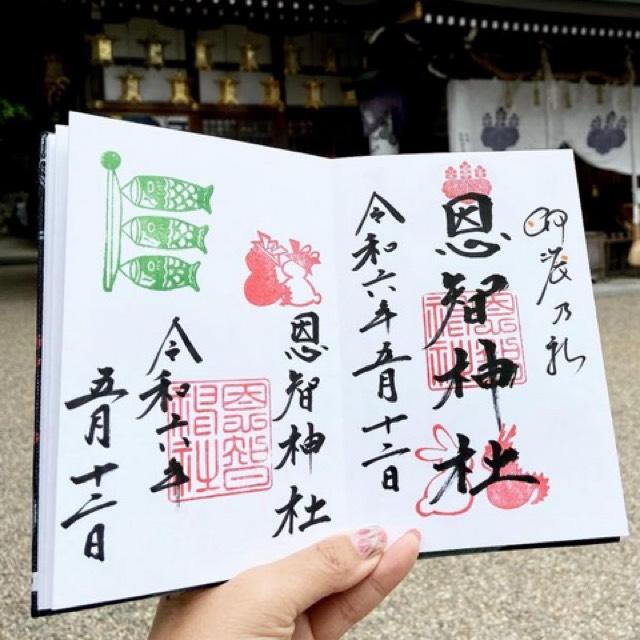 恩智神社
恩智神社
令和六年五月十二日
恩智神社
恩智神社
令和六年
五月十二日